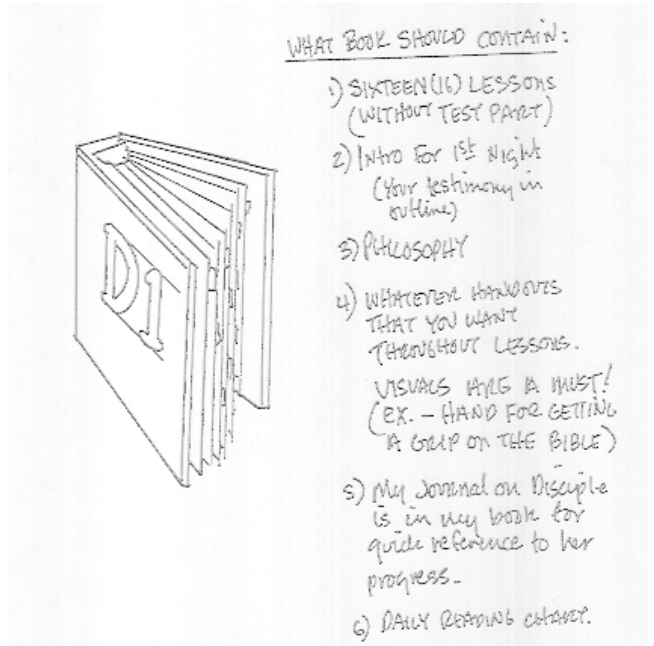 WHAT BOOK SHOULD CONTAIN:
1) SIXTEEN (16) LESSONS
(WITHOUT TEST PART)
2) INTRO FOR 1st NIGHT
(Your testimony in
outline)
3) PHILOSOPHY
4) WHATEVER HANDOUTS
THAT YOU WANT
THROUGHOUT LESSONS.
VISUALS ARE A MUST!
(EX. - HAND FOR GETTING
A GRIP ON THE BIBLE)
5) My Journal on Disciple
is in my book for
quick reference to her
progress.
6) DAILY READING CHART.
D1